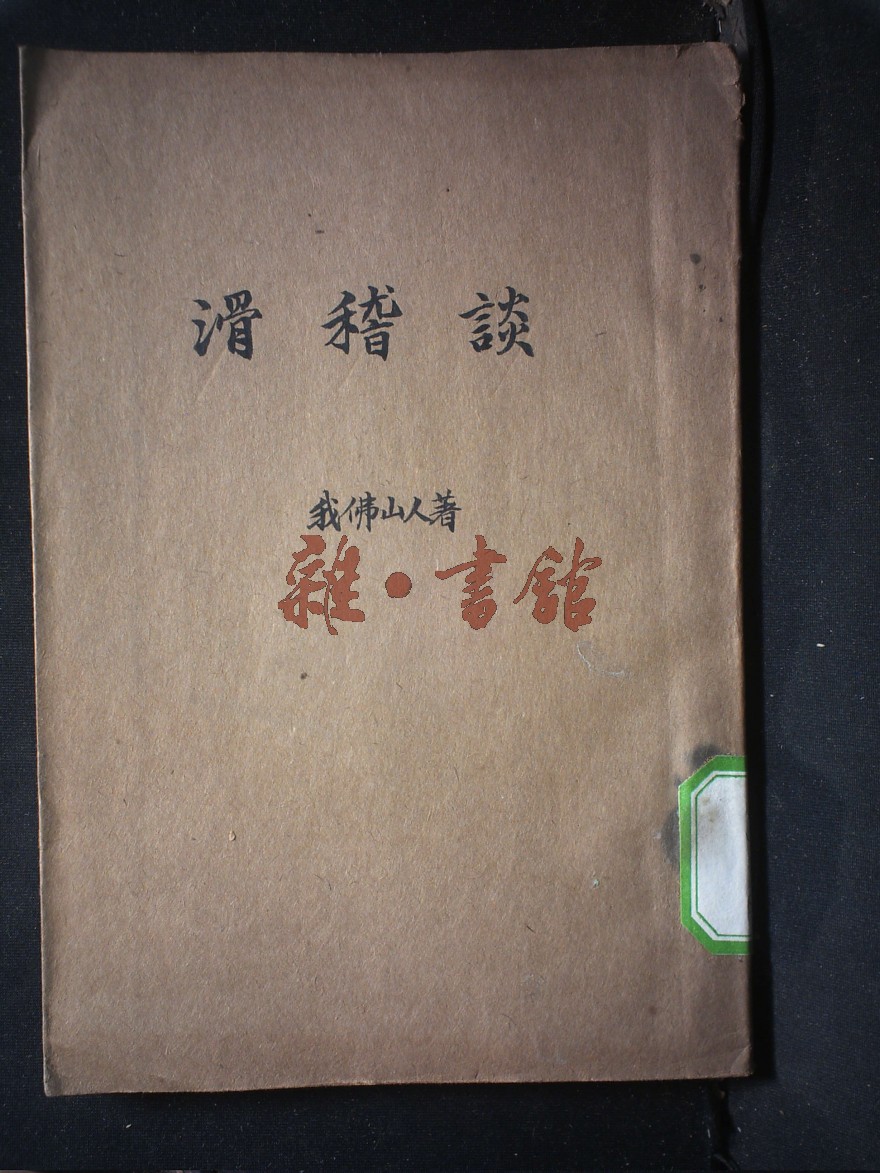 滑稽談
我佛山人著
雜·書館